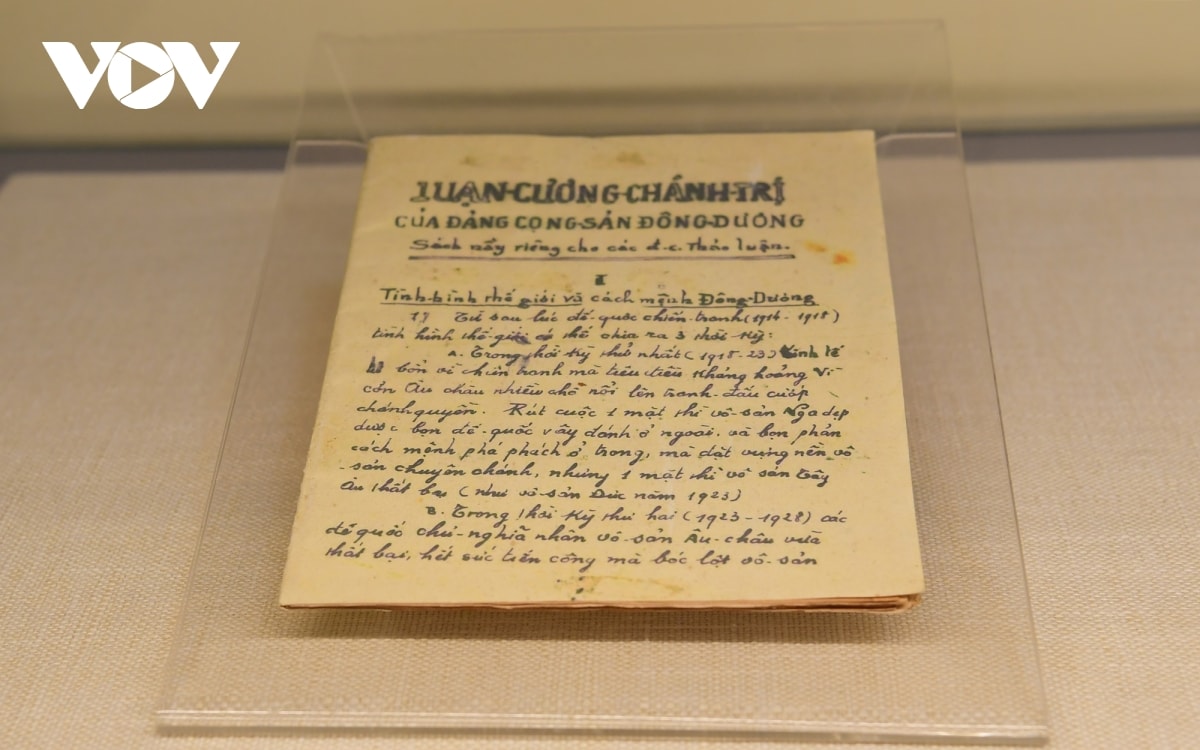 VOV
LUẬN-CƯƠNG-CHÁNH-TRỊ
CỦA ĐẢNG CỌNG-SẢN ĐÔNG-DƯƠNG
Sách nầy riêng cho các đ.c. Thảo luận.
I
Tình-hình thế giới và cách mệnh Đông-Dương
1) Từ sau lúc đế-quốc chiến-tranh (1914-1918)
tình hình thế-giới có thể chia ra 3 thời kỳ:
A. Trong thời kỳ thứ nhất (1918-23) Kinh tế
bổn vì chiến tranh mà tiêu điều khủng hoảng Vì
còn Âu châu nhiều chỗ nổi lên tranh-đấu cướp
chánh quyền. Rút cuộc 1 mặt thì vô-sản Nga dẹp
được bọn đế-quốc vây đánh ở ngoài, và bọn phản
cách mệnh phá phách ở trong, mà đặt vựng nền vô
-sản chuyên chánh, nhưng 1 mặt thì vô sản Tây
Âu thất bại (như vô-sản Đức năm 1923)
B. Trong thời kỳ thứ hai (1923-1928) các
đế quốc chủ-nghĩa nhân vô-sản Âu-châu vừa
thất bại, hết sức tiến công mà bóc lột vô-sản